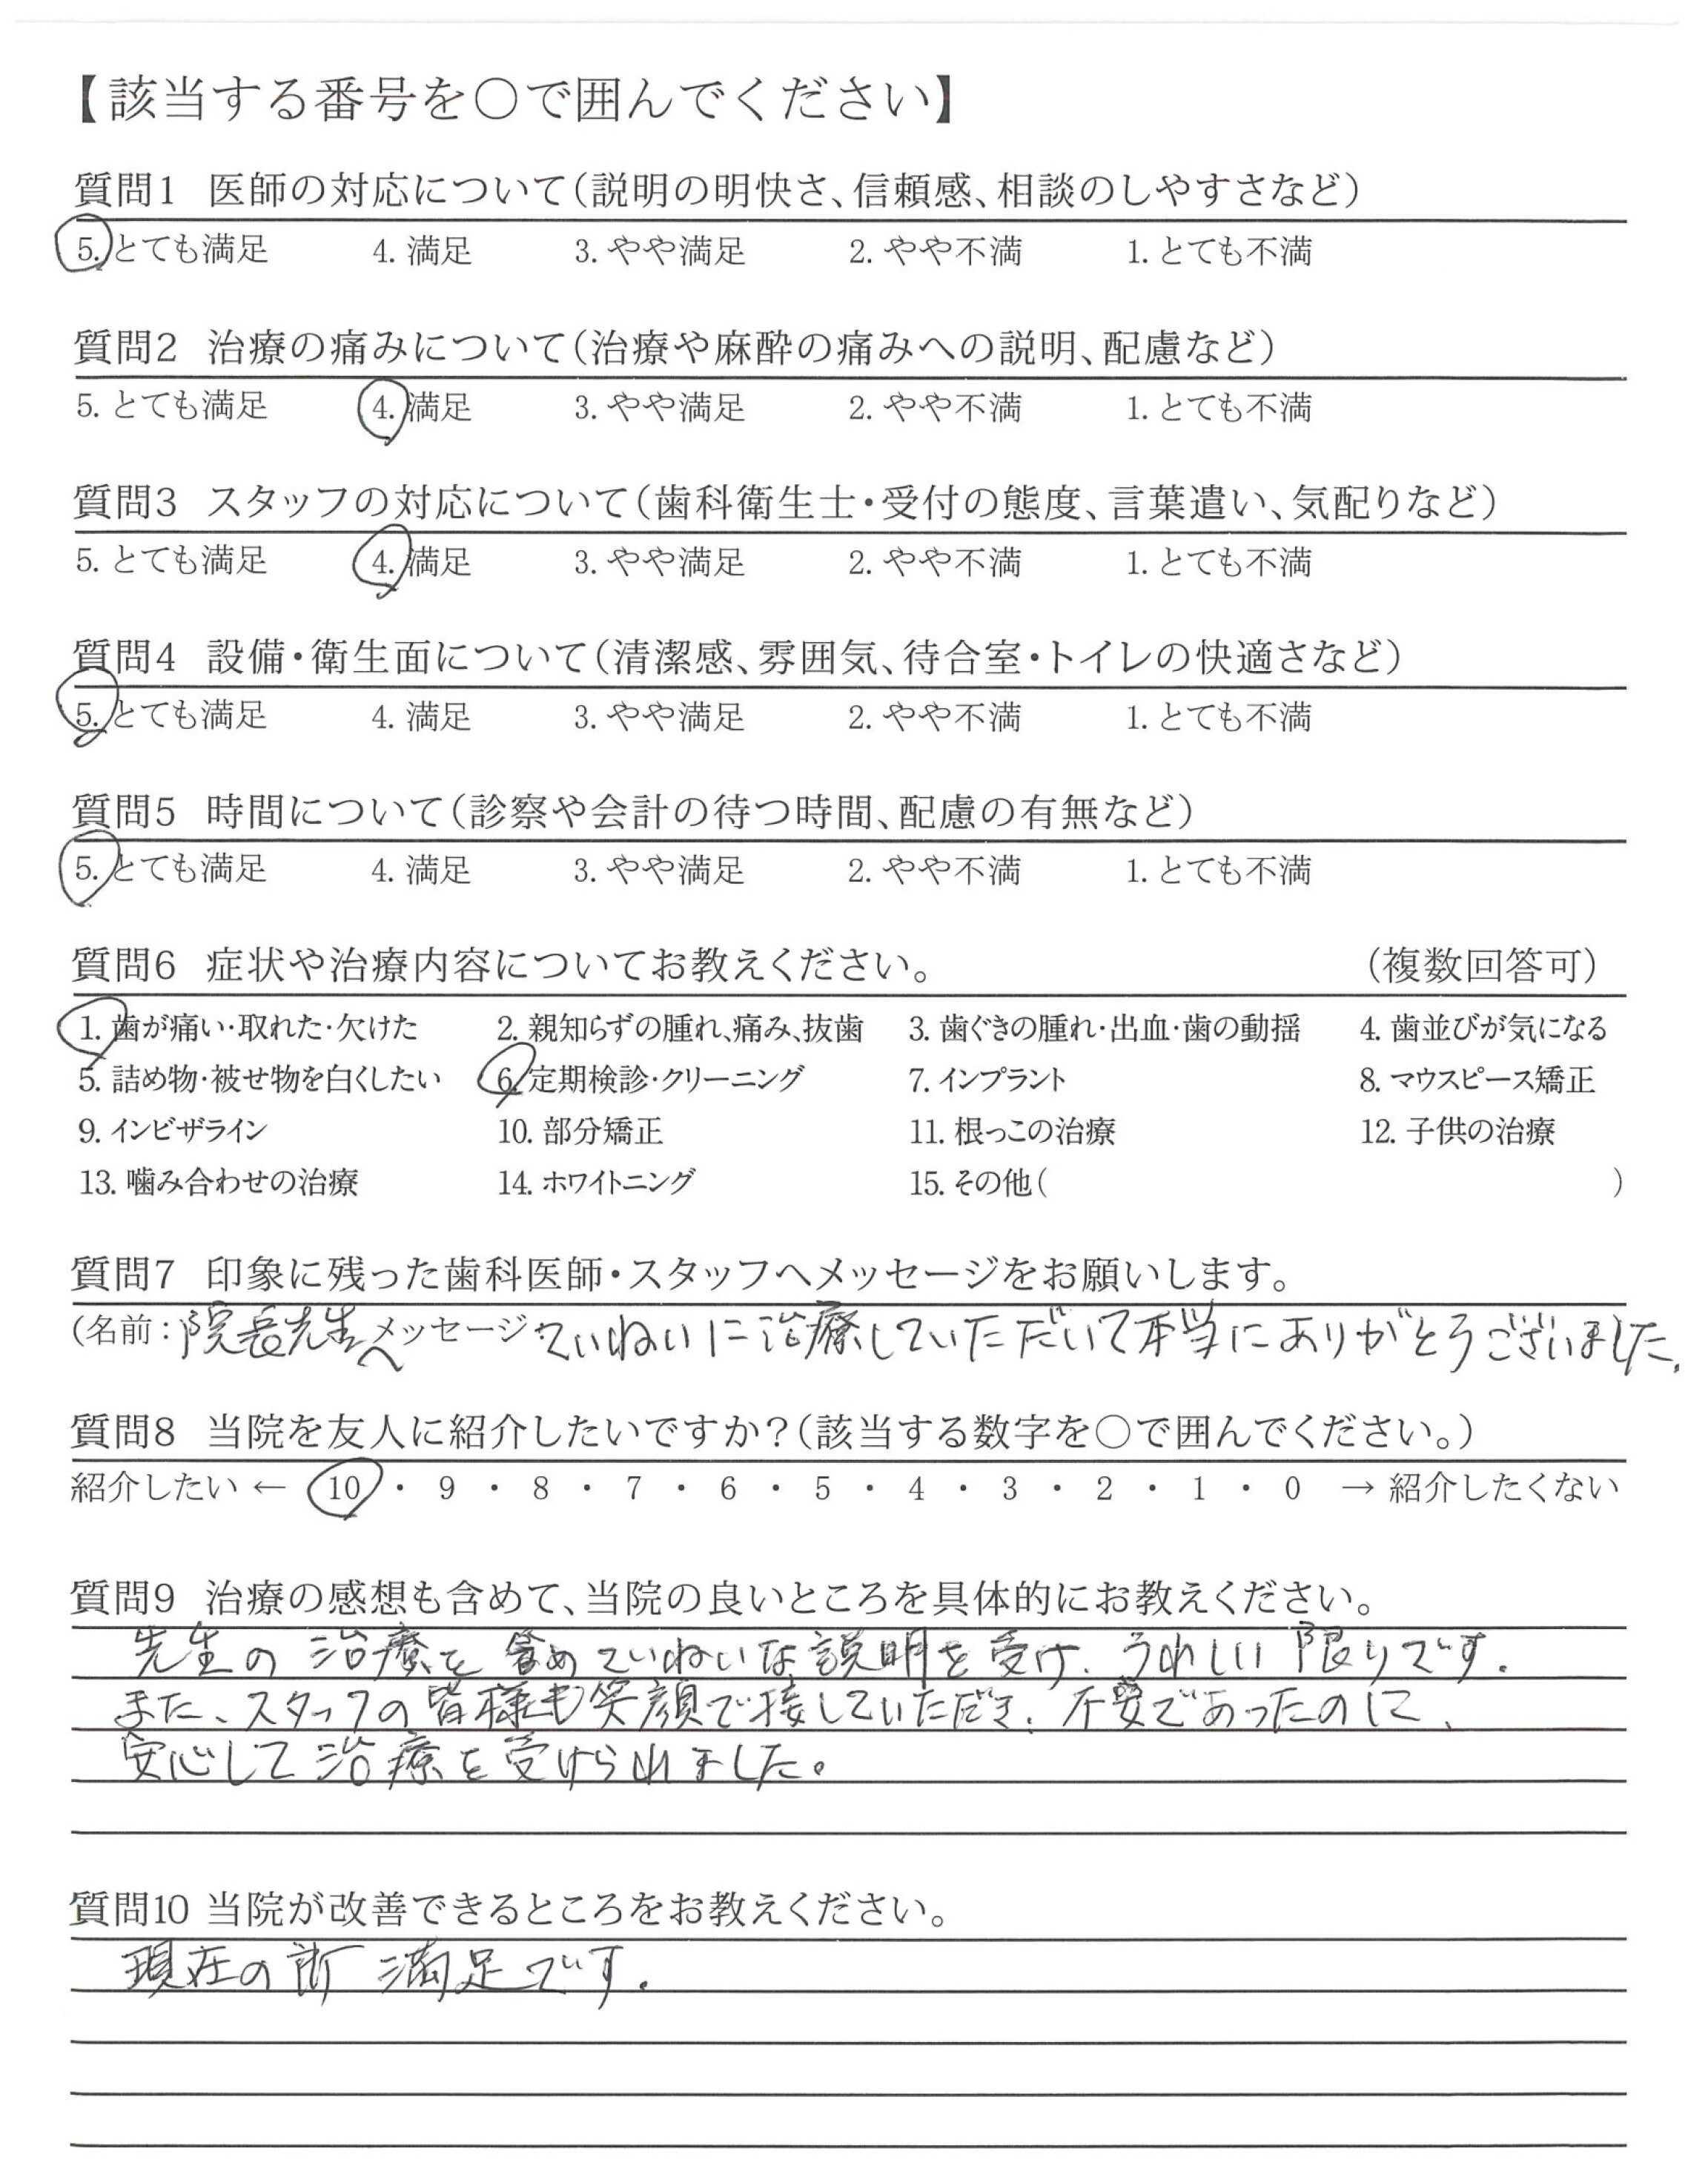 【該当する番号を○で囲んでください】
質問1 医師の対応について（説明の明快さ、信頼感、相談のしやすさなど）
5. とても満足 4. 満足 3. やや満足 2. やや不満 1. とても不満
質問2 治療の痛みについて（治療や麻酔の痛みへの説明、配慮など）
5. とても満足 4. 満足 3. やや満足 2. やや不満 1. とても不満
質問3 スタッフの対応について（歯科衛生士・受付の態度、言葉遣い、気配りなど）
5. とても満足 4. 満足 3. やや満足 2. やや不満 1. とても不満
質問4 設備・衛生面について（清潔感、雰囲気、待合室・トイレの快適さなど）
5. とても満足 4. 満足 3. やや満足 2. やや不満 1. とても不満
質問5 時間について（診察や会計の待つ時間、配慮の有無など）
5. とても満足 4. 満足 3. やや満足 2. やや不満 1. とても不満
質問6 症状や治療内容についてお教えください。 （複数回答可）
1. 歯が痛い・取れた・欠けた 2. 親知らずの腫れ、痛み、抜歯 3. 歯ぐきの腫れ・出血・歯の動揺 4. 歯並びが気になる
5. 詰め物・被せ物を白くしたい 6. 定期検診・クリーニング 7. インプラント 8. マウスピース矯正
9. インビザライン 10. 部分矯正 11. 根っこの治療 12. 子供の治療
13. 噛み合わせの治療 14. ホワイトニング 15. その他（ ）
質問7 印象に残った歯科医師・スタッフへメッセージをお願いします。
（名前：院長先生へ メッセージ：ていねいに治療していただいて本当にありがとうございました.
質問8 当院を友人に紹介したいですか？（該当する数字を○で囲んでください。）
紹介したい ← 10 ・ 9 ・ 8 ・ 7 ・ 6 ・ 5 ・ 4 ・ 3 ・ 2 ・ 1 ・ 0 → 紹介したくない
質問9 治療の感想も含めて、当院の良いところを具体的にお教えください。
先生の治療を含めていねいな説明を受け、うれしい限りです.
また、スタッフの皆様も笑顔で接していただき、不安であったのに、
安心して治療を受けられました。
質問10 当院が改善できるところをお教えください。
現在の所 満足です.